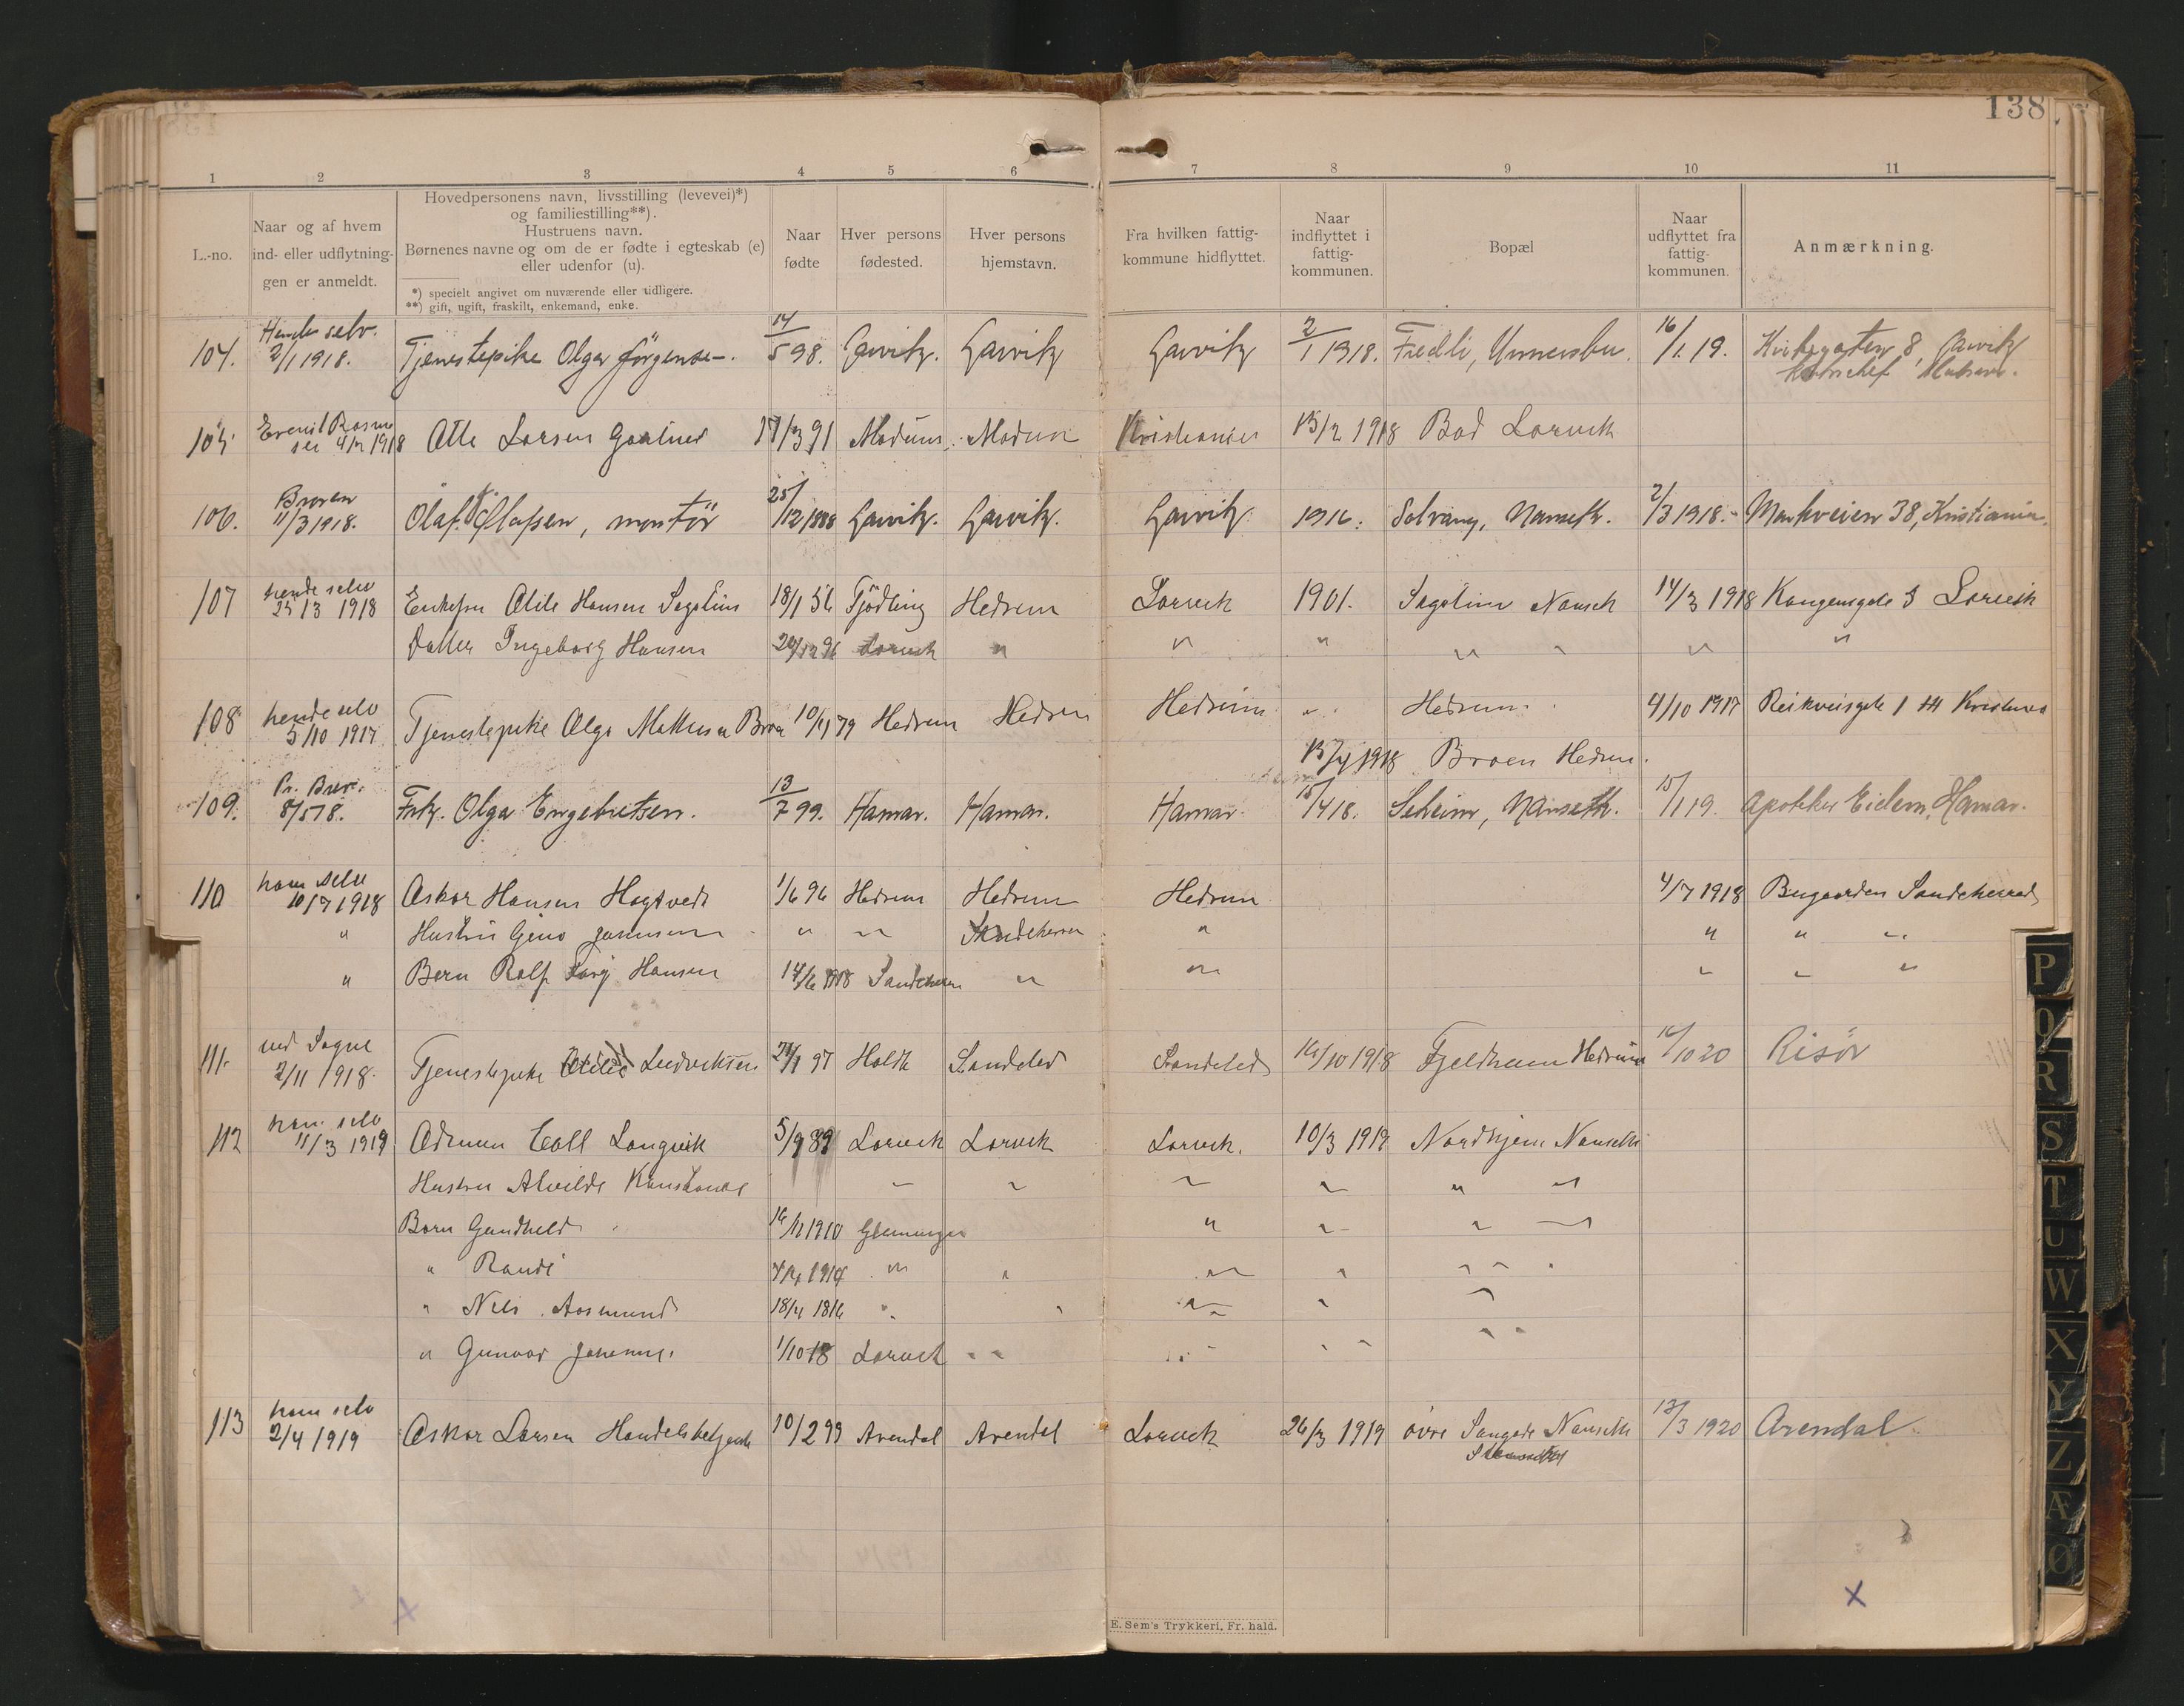 138
1 2 3 4 5 6 7 8 9 10 11
L.-no.
Naar og af hvem
ind- eller udflytning-
gen er anmeldt.
Hovedpersonens navn, livsstilling (levevei)*)
og familiestilling**).
Hustruens navn.
Børnenes navne og om de er fødte i egteskab (e)
eller udenfor (u).
*) specielt angivet om nuværende eller tidligere.
**) gift, ugift, fraskilt, enkemand, enke.
Naar
fødte
Hver persons
fødested.
Hver persons
hjemstavn.
Fra hvilken fattig-
kommune hidflyttet.
Naar
indflyttet i
fattig-
kommunen.
Bopæl
Naar
udflyttet fra
fattig-
kommunen.
Anmærkning.
104. selv. 2/1 1918. Tjenestepike Olga Jörgensen. 14/5 98. Larvik. Larvik Larvik 2/1 1918. Fredli, 16/1 19. Kirkegaten 8, Larvik
105 4/2 1918 Larsen 17/3 91 Modum Modum Kristiania 15/2 1918 Bad Larvik
106. Broren 11/3 1918. Olaf Olafsen, montör 25/12 1888 Larvik. Larvik. Larvik 1916. Solvang, Nanseth. 2/3 1918. Markveien 38, Kristiania.
107 hende selv 25/3 1918 Enkefru Hansen 18/1 56 Tjödling Hedrum Larvik 1901. 14/3 1918 Kongensgate Larvik
Datter Ingeborg Hansen 96 Larvik " " " " " " "
108 hende selv 5/10 1917 Tjenestepike Olga 10/11 79 Hedrum Hedrum Hedrum " Hedrum 4/10 1917
1918 Broen Hedrum.
109. Pr. Brev. 8/5 18. Frk. Olga Engebretsen. 13/7 99. Hamar. Hamar. Hamar. 15/4 18. Nanseth. 15/1 19. Apotheker Hamar.
110 ham selv 10/7 1918 Oskar Hansen 1/6 96 Hedrum Hedrum Hedrum 4/7 1918 Bugaarden Sandeherred
" Hustru " " Sandeherred " " " "
" Barn Rolf Hansen 14/6 1918 Sandeherred " " " " "
111. 2/11 1918. Tjenestepike 97 Holdt Söndeled Söndeled 16/10 1918 Fjeldheim Hedrum 16/10 20 Risör
112 ham selv 11/3 1919 Langvik 5/9 89 Larvik Larvik Larvik. 10/3 1919 Nordhjem Nanseth
Hustru Alvilde " " " " " "
Barn Gundhild 1910 " " " "
" Randi " " " " "
" Nils Aasmund 18/4 1816 " " " " "
" Gunvor Johanne 1/10 18 Larvik " " " "
113 ham selv 2/4 1919 Oskar Larsen Handelsbetjent 10/2 99 Arendal Arendal Larvik 26/3 1919 övre Nanseth 12/3 1920 Arendal
E. Sem's Trykkeri, Fr. hald.
P
R
S
T
U
W
X
Y
Z
Æ
Ø